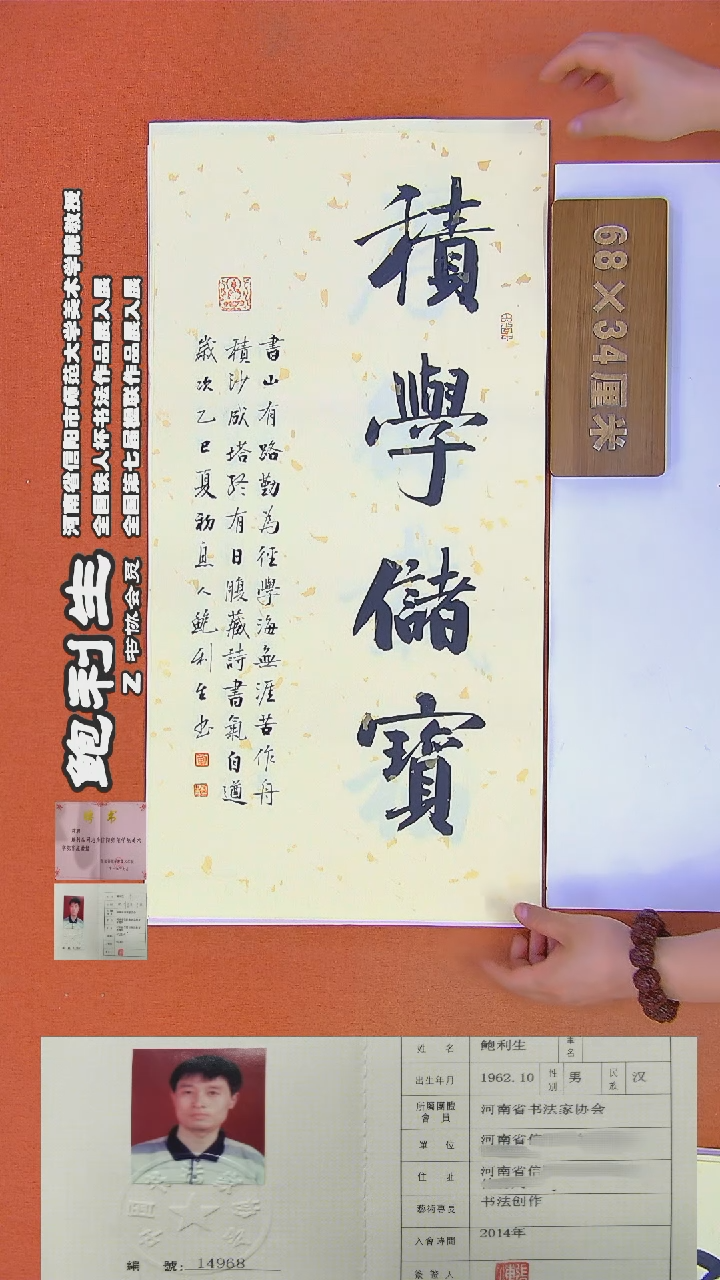 積學儲寶
書山有路勤為徑學海無涯苦作舟
積沙成塔終有日腹藏詩書氣自遒
歲次乙巳夏初息人鮑利生書
68×34厘米
河南省信阳市师范大学美术学院教授
全国铁人杯书法作品展入展
全国第七届楹联作品展入展
鲍利生
Z书协会员
聘书
姓 名 鲍利生
出生年月 1962.10 性别 男 民族 汉
所屬團體會員 河南省书法家协会
單 位 河南省信
住 址 河南省信
藝術專長 书法创作
入會時間 2014年
簽發人
編 號: 14968